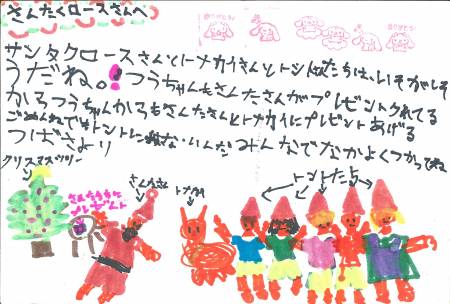 さんたくロースさんへ
ありがとう!
ありがとう!
サンタクロースさんとトナカイさんとトントたちは、いそがしそ
うだね。!つうちゃんもさんたさんがプレゼントくれてる
からつうちゃんからもさんたさんとトナカイにプレゼントあげる
ごめんねでもトントに
いんだみんなでなかよくつかってね
つばさより
クリスマスツリー
さんたさん
トナカイ
トントたち